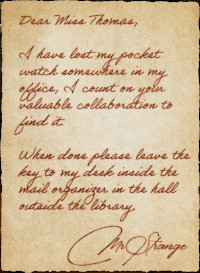 Dear Miss Thomas,
I have lost my pocket
watch somewhere in my
office, I count on your
valuable collaboration to
find it.
When done please leave the
key to my desk inside the
mail organizer in the hall
outside the library.
Mr Strange